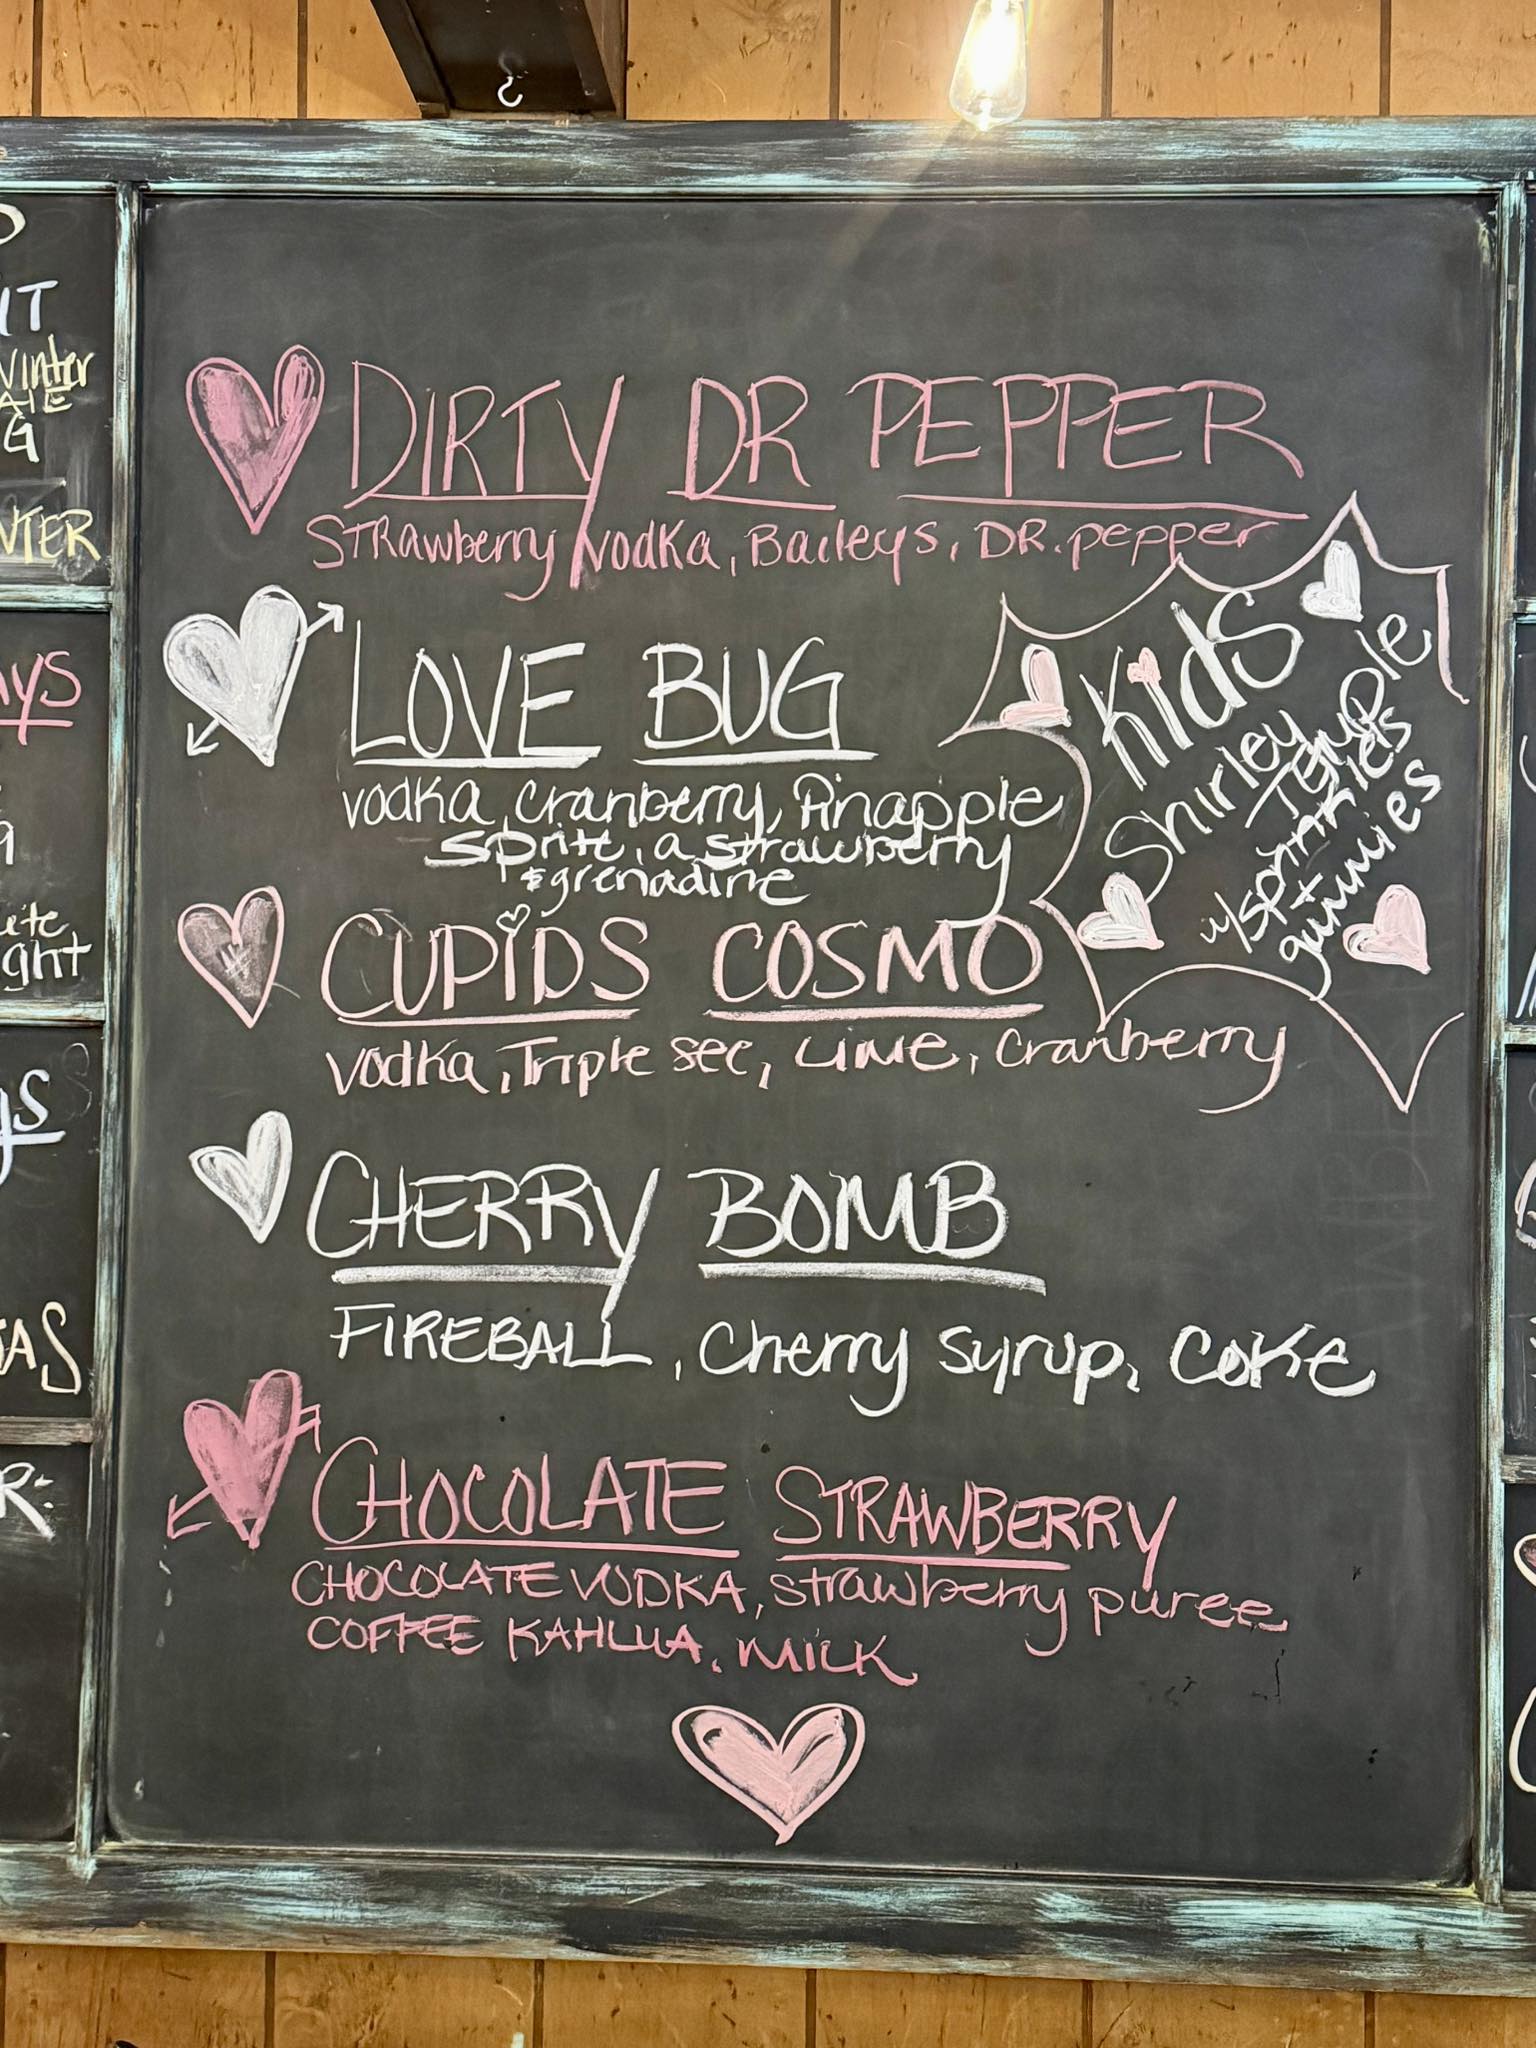 DIRTY DR PEPPER
STRawberry vodka, Baileys, DR. pepper
LOVE BUG
vodka, cranberry, Pinapple
Sprite, a strawberry
& grenadine
Kids
Shirley
Temple
w/sprinkles
+
gummies
CUPIDS COSMO
Vodka, Triple sec, Lime, Cranberry
CHERRY BOMB
FIREBALL, Cherry syrup, Coke
CHOCOLATE STRAWBERRY
CHOCOLATE VODKA, strawberry puree
COFFEE KAHLUA, MILK
winter